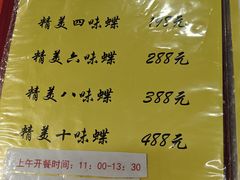 精美四味蝶 198元
精美六味蝶 288元
精美八味蝶 388元
精美十味蝶 488元
上午开餐时间：11：00-13：30